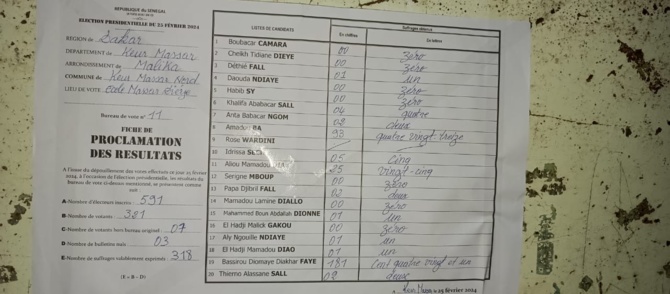 REPUBLIQUE DU SENEGAL
ELECTION PRESIDENTIELLE DU 25 FÉVRIER 2024
REGION de Dakar
DEPARTEMENT de Keur Massar
ARRONDISSEMENT de Malika
COMMUNE de Keur Massar Nord
LIEU DE VOTE Ecole Massar
Bureau de vote n° 11
FICHE DE
PROCLAMATION
DES RESULTATS
A l'issue du dépouillement des votes effectués ce jour 25 février
2024, à l'occasion de l'élection présidentielle, les résultats du
bureau de vote ci-dessus mentionné, se présentent comme
suit :
A-Nombre d'électeurs inscrits 591
B-Nombre de votants 321
C-Nombre de votants hors bureau originel 07
D-Nombre de bulletins nuls 03
E-Nombre de suffrages valablement exprimés 318
(E = B - D)
LISTES DE CANDIDATS Suffrages obtenus
En chiffres En lettres
1 Boubacar CAMARA 00 zéro
2 Cheikh Tidiane DIEYE 00 zéro
3 Déthié FALL 01 un
4 Daouda NDIAYE 00 zéro
5 Habib SY 00 zéro
6 Khalifa Ababacar SALL 04 quatre
7 Anta Babacar NGOM 02 deux
8 Amadou BA 93 quatre vingt treize
9 Rose WARDINI
10 Idrissa 05 Cinq
11 Aliou Mamadou DIA 25 vingt-cinq
12 Serigne MBOUP 00 zéro
13 Papa Djibril FALL 02 deux
14 Mamadou Lamine DIALLO 00 zéro
15 Mahammed Boun Abdallah DIONNE 01 un
16 El Hadji Malick GAKOU 00 zéro
17 Aly Ngouille NDIAYE 01 un
18 El Hadji Mamadou DIAO 01 un
19 Bassirou Diomaye Diakhar FAYE 181 Cent quatre vingt et un
20 Thierno Alassane SALL 02 deux
25 février 2024